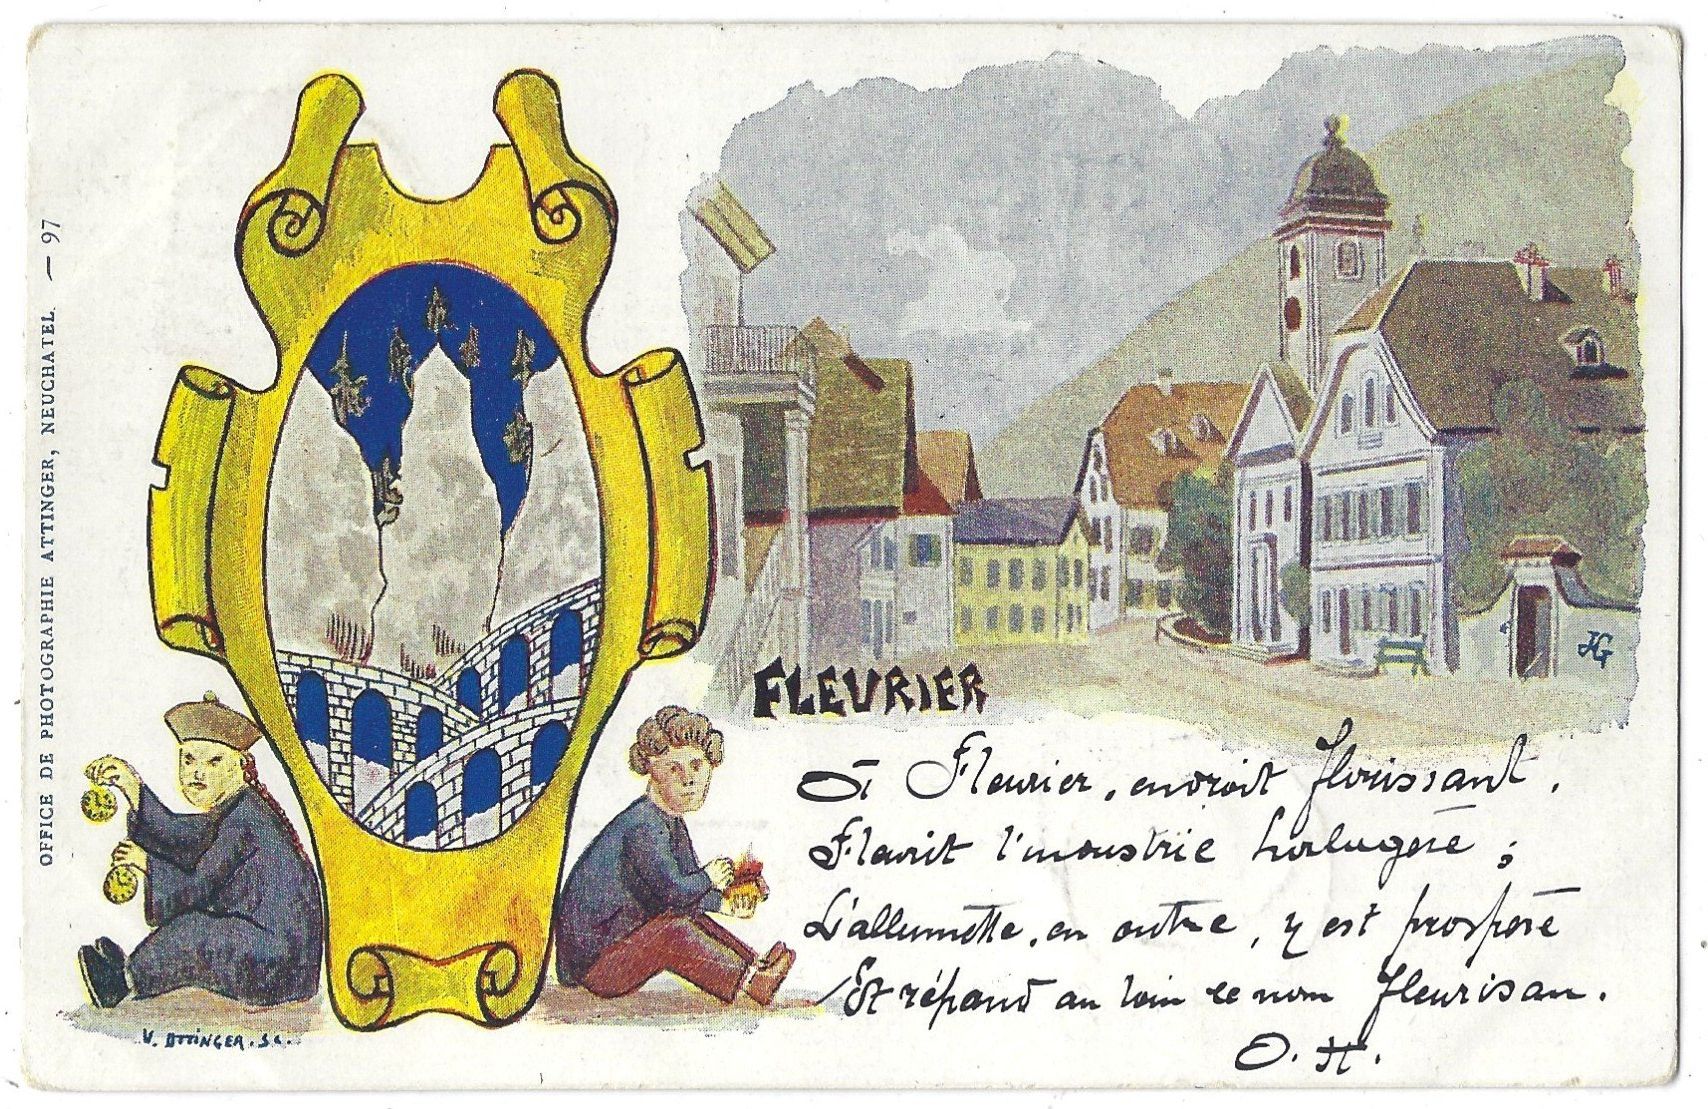 OFFICE DE PHOTOGRAPHIE ATTINGER, NEUCHATEL. — 97
FLEURIER
JG
A Fleurier, endroit florissant,
Fleurit l'industrie horlogère ;
L'allumette, en outre, y est prospère
Et répand au loin ce nom fleurisan.
O. H.
V. ATTINGER. SC.